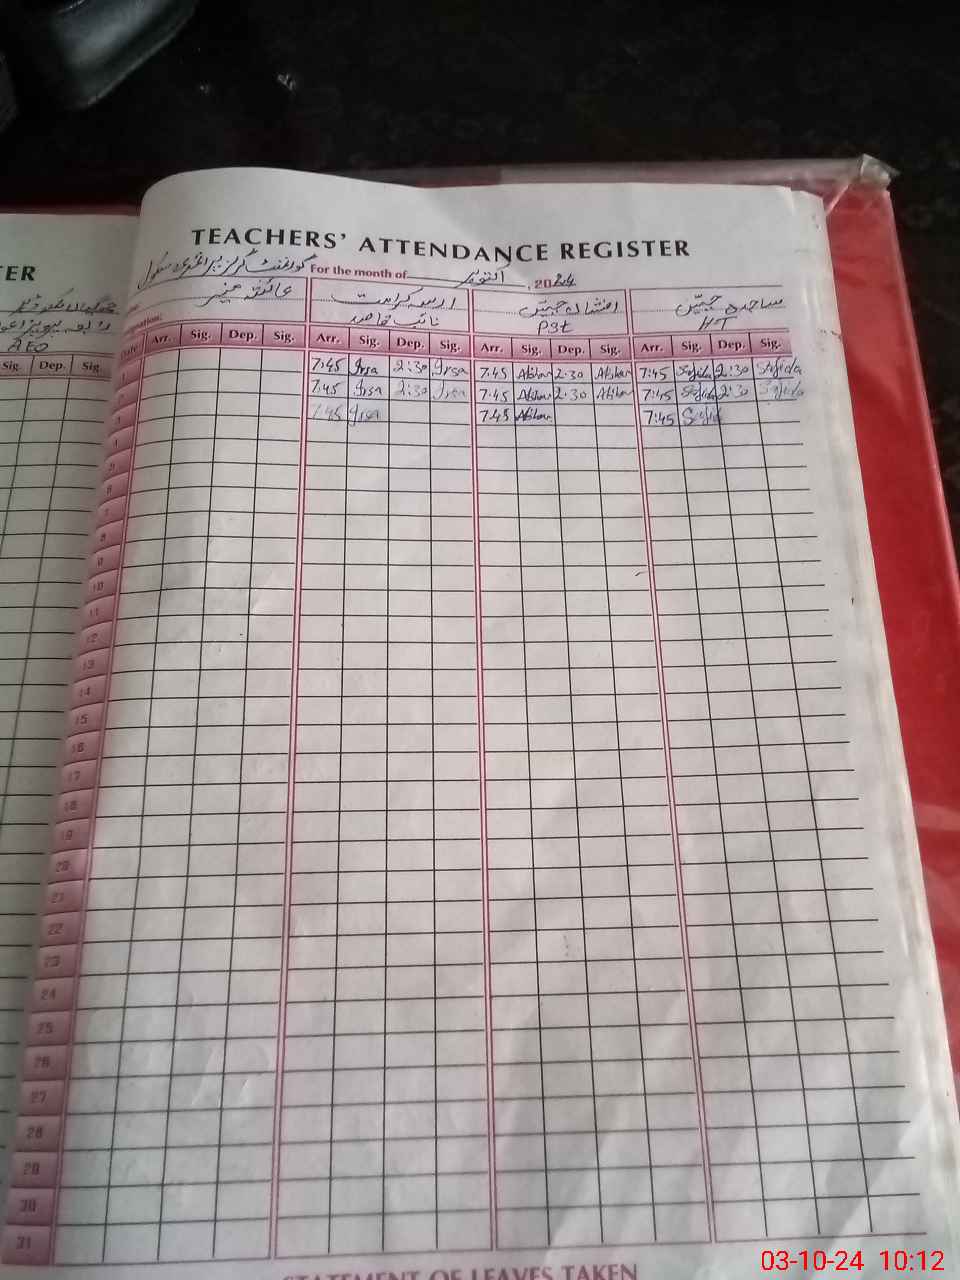 TER
AEO
Sig. Dep. Sig
TEACHERS' ATTENDANCE REGISTER
گورنمنٹ گرلز پرائمری سکول For the month of اکتوبر , 2024
عائشہ منیر
ارسہ کرامت
نائب قاصد
افشاں جبیں
PST
ساجدہ جبیں
HT
Date Arr. Sig. Dep. Sig. Arr. Sig. Dep. Sig. Arr. Sig. Dep. Sig. Arr. Sig. Dep. Sig.
1 7:45 Irsa 2:30 Irsa 7:45 Afshan 2:30 Afshan 7:45 Sajida 2:30 Sajida
2 7:45 Irsa 2:30 Irsa 7:45 Afshan 2:30 Afshan 7:45 Sajida 2:30 Sajida
3 7:45 Irsa 7:45 Afshan 7:45 Sajida
4
5
6
7
8
9
10
11
12
13
14
15
16
17
18
19
20
21
22
23
24
25
26
27
28
29
30
31
STATEMENT OF LEAVES TAKEN
03-10-24 10:12